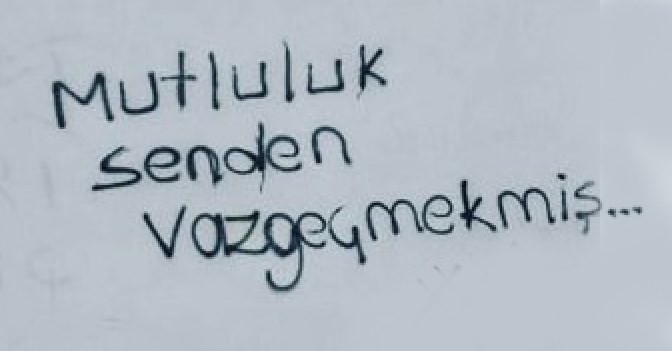 Mutluluk
senden
Vazgeçmekmiş...